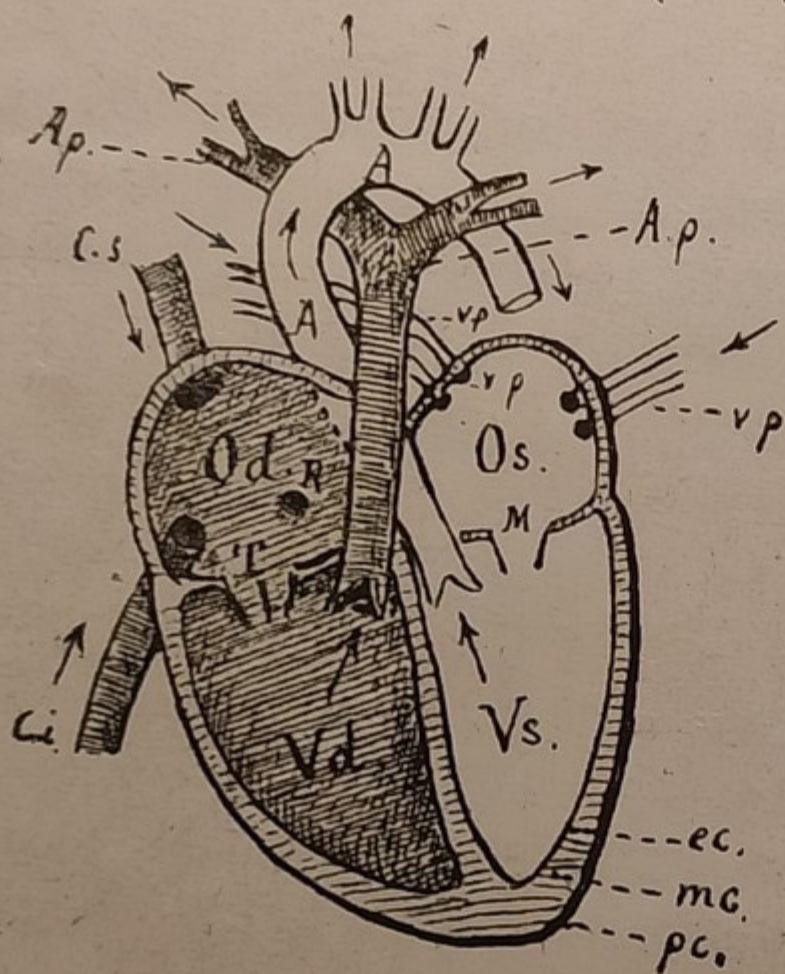 A
Ap.
A.p.
C.s
A
vp
vp
vp
Od.
R
Os.
M
T
Ci.
Vs.
Vd.
ec.
mc.
pc.